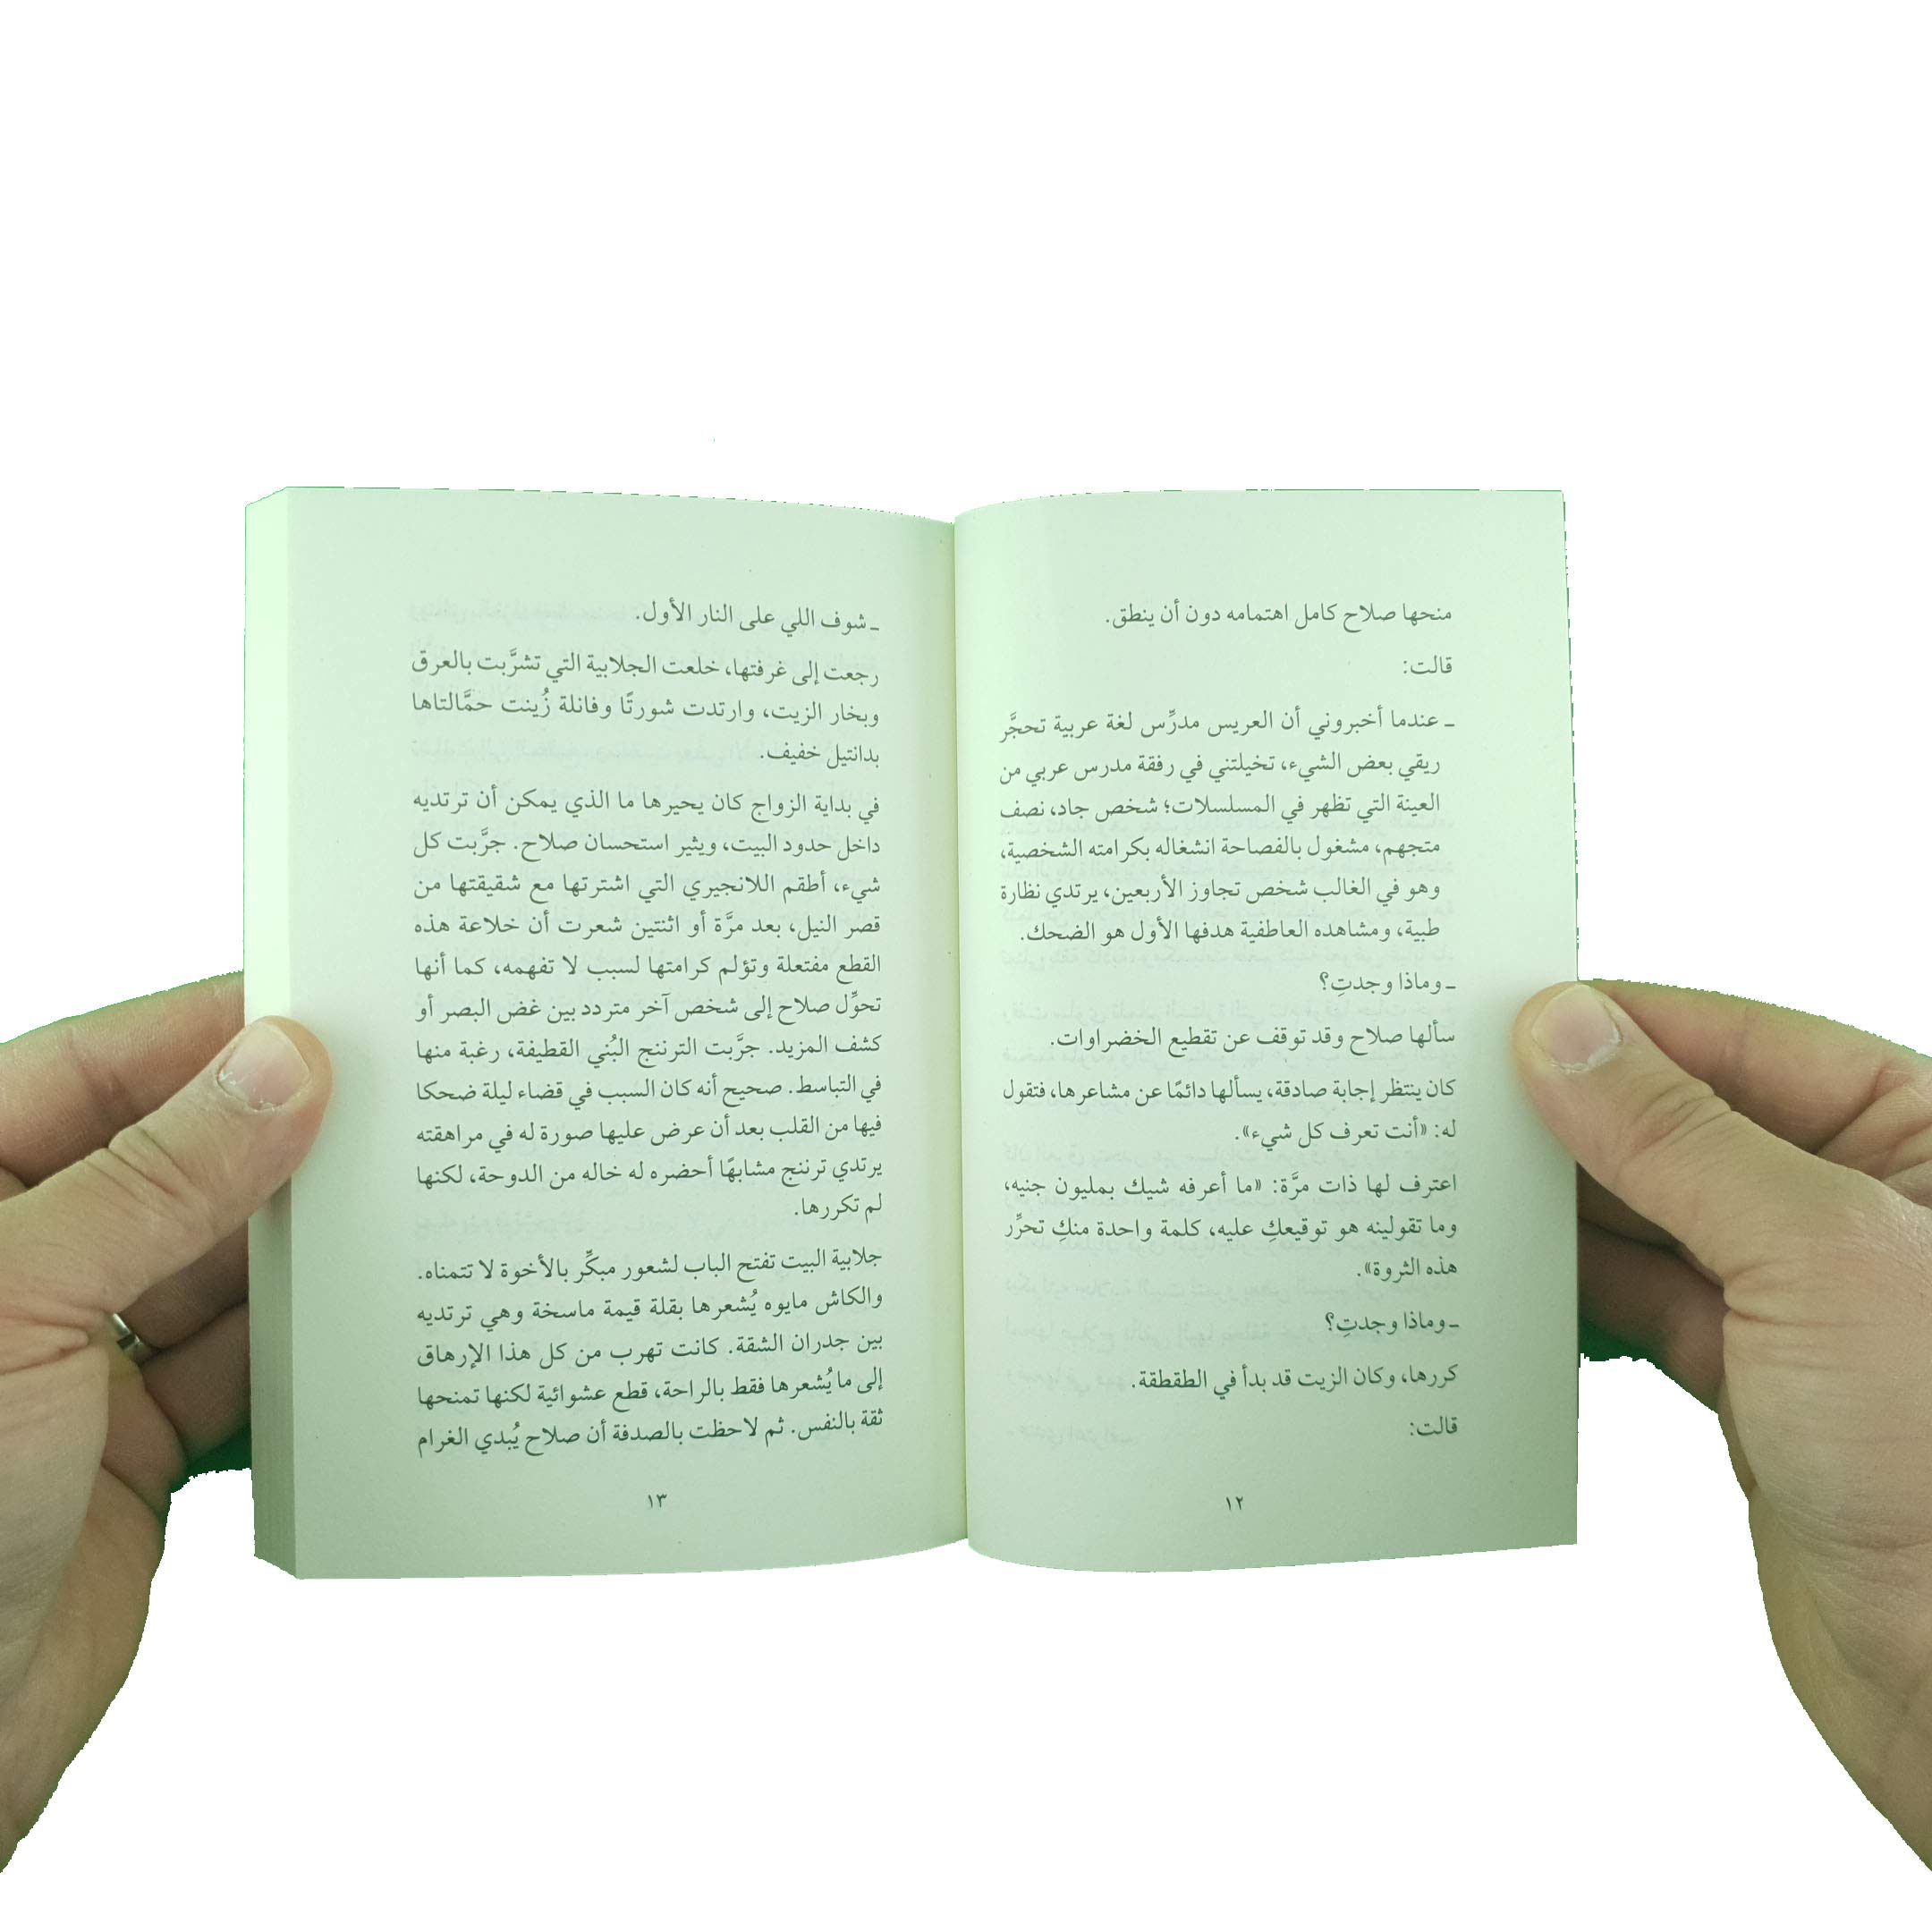 منحها صلاح كامل اهتمامه دون أن ينطق.
قالت:
ـ عندما أخبروني أن العريس مدرِّس لغة عربية تحجَّر
ريقي بعض الشيء، تخيلتني في رفقة مدرس عربي من
العينة التي تظهر في المسلسلات؛ شخص جاد، نصف
متجهم، مشغول بالفصاحة انشغاله بكرامته الشخصية،
وهو في الغالب شخص تجاوز الأربعين، يرتدي نظارة
طبية، ومشاهده العاطفية هدفها الأول هو الضحك.
ـ وماذا وجدتِ؟
سألها صلاح وقد توقف عن تقطيع الخضراوات.
كان ينتظر إجابة صادقة، يسألها دائمًا عن مشاعرها، فتقول
له: «أنت تعرف كل شيء».
اعترف لها ذات مرَّة: «ما أعرفه شيك بمليون جنيه،
وما تقولينه هو توقيعكِ عليه، كلمة واحدة منكِ تحرِّر
هذه الثروة».
ـ وماذا وجدتِ؟
كررها، وكان الزيت قد بدأ في الطقطقة.
قالت:
١٢
ـ شوف اللي على النار الأول.
رجعت إلى غرفتها، خلعت الجلابية التي تشرَّبت بالعرق
وبخار الزيت، وارتدت شورتًا وفانلة زُينت حمَّالتاها
بدانتيل خفيف.
في بداية الزواج كان يحيرها ما الذي يمكن أن ترتديه
داخل حدود البيت، ويثير استحسان صلاح. جرَّبت كل
شيء، أطقم اللانجيري التي اشترتها مع شقيقتها من
قصر النيل، بعد مرَّة أو اثنتين شعرت أن خلاعة هذه
القطع مفتعلة وتؤلم كرامتها لسبب لا تفهمه، كما أنها
تحوِّل صلاح إلى شخص آخر متردد بين غض البصر أو
كشف المزيد. جرَّبت الترننج البُني القطيفة، رغبة منها
في التباسط. صحيح أنه كان السبب في قضاء ليلة ضحكا
فيها من القلب بعد أن عرض عليها صورة له في مراهقته
يرتدي ترننج مشابهًا أحضره له خاله من الدوحة، لكنها
لم تكررها.
جلابية البيت تفتح الباب لشعور مبكِّر بالأخوة لا تتمناه.
والكاش مايوه يُشعرها بقلة قيمة ماسخة وهي ترتديه
بين جدران الشقة. كانت تهرب من كل هذا الإرهاق
إلى ما يُشعرها فقط بالراحة، قطع عشوائية لكنها تمنحها
ثقة بالنفس. ثم لاحظت بالصدفة أن صلاح يُبدي الغرام
١٣